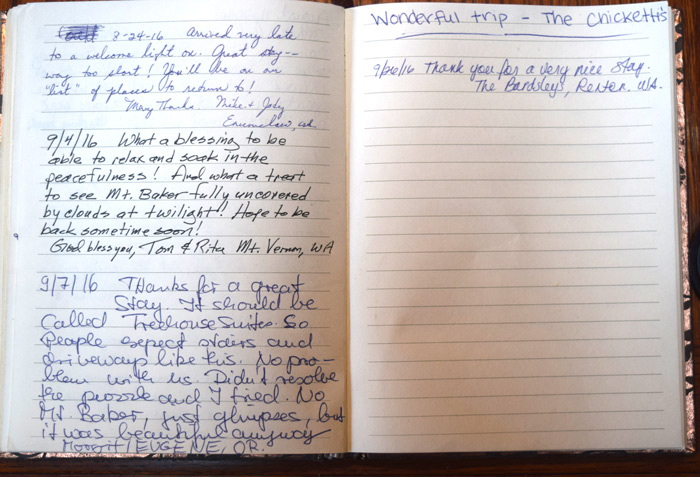 8-24-16 Arrived very late
to a welcome light on. Great stay--
way too short! You'll be on our
"list" of places to return to!
Many Thanks. Mike & Jody
Enumclaw, wa.
9/4/16 What a blessing to be
able to relax and soak in the
peacefulness! And what a treat
to see Mt. Baker fully uncovered
by clouds at twilight!! Hope to be
back sometime soon!
God bless you, Tom & Rita Mt. Vernon, WA
9/7/16 Thanks for a great
Stay. It should be
Called Treehouse Suites. So
People expect stairs and
driveways like this. No pro-
blem with us. Didn't resolve
the puzzle and I tried. No
Mt. Baker, just glimpses, but
it was beautiful anyway
EUGENE, OR.
Wonderful trip - The Chicketti's
9/26/16 Thank you for a very nice stay.
The Bardsleys, Renton. WA.